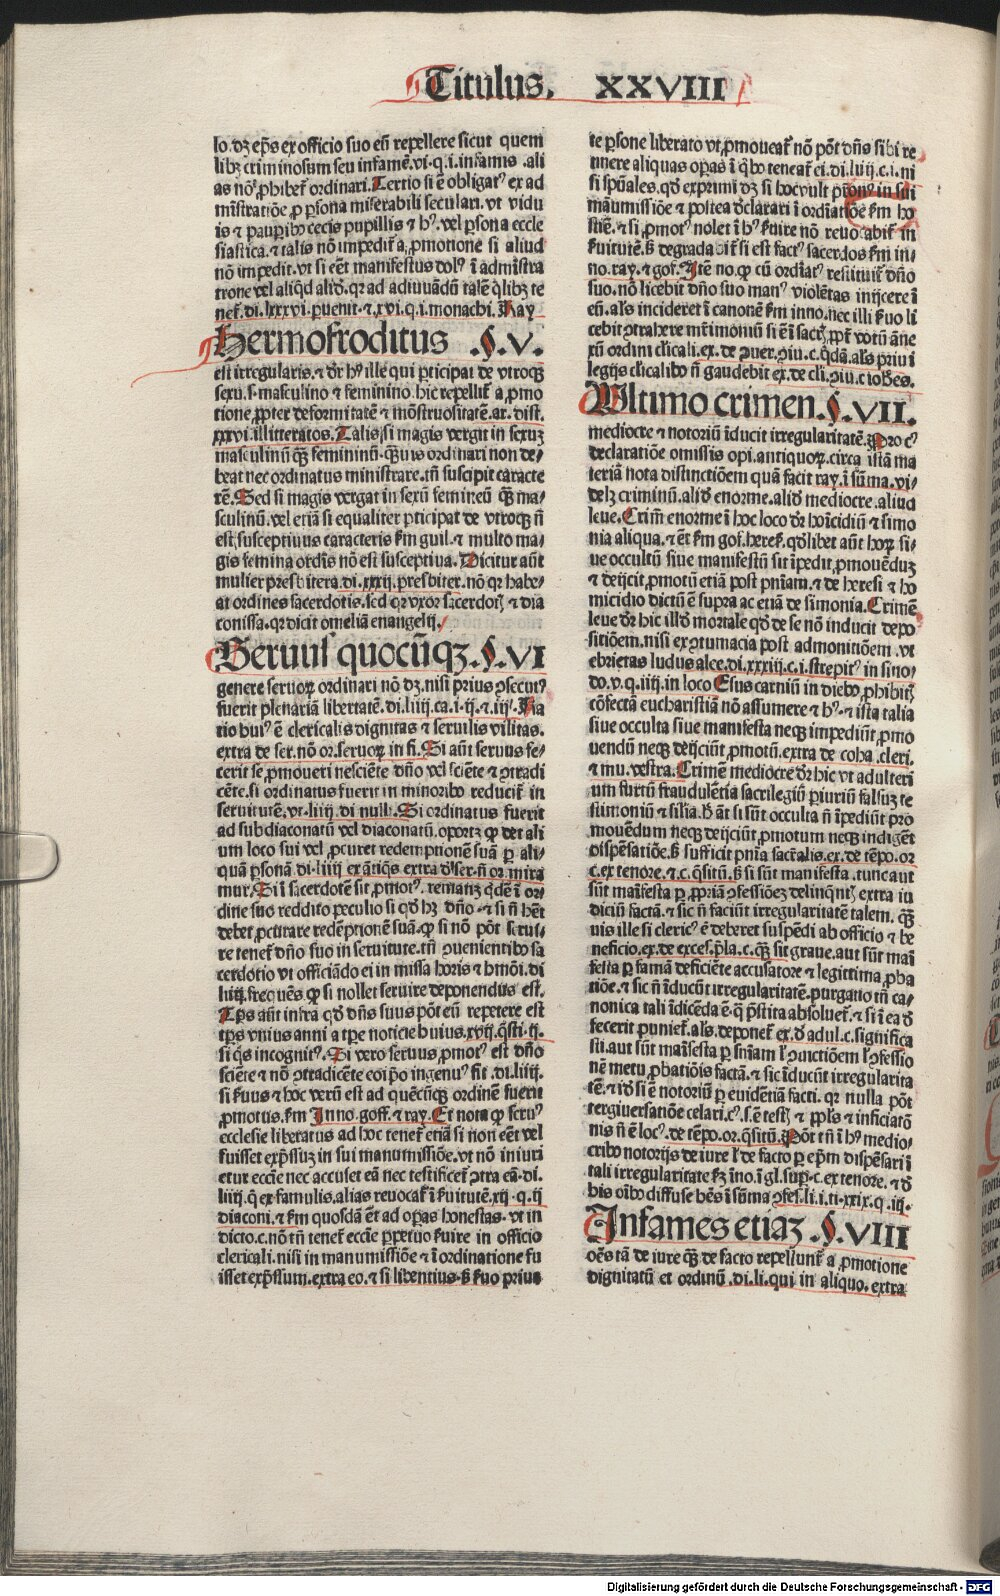 Titulus. XXVIII
lo. dʒ ep̄s ex officio suo eū repellere sicut quem
libʒ criminosum seu infamē. vi. q. i. infamis. ali
as nō ꝓhibet᷑ ordinari. Tertio si ē obligatꝰ ex ad
mīstratiōe ꝓ ꝑsona miserabili seculari. vt vidu
is ⁊ pauꝑibꝰ cecis pupillis ⁊ hꝰ. vel ꝑsona eccle
siastica. ⁊ talis nō impedit᷑ a ꝓmotione si aliud
nō impedit. vt si eēt manifestus dolꝰ ī admīstra
tione vel aliq̄d aliđ. qꝛ ad adiuuādū talē q̄libʒ te
net᷑. di. lxxxvi. ꝑuenit. ⁊. xvi. q. i. monachi. Ray
Hermofroditus .§. V.
est irregularis. ⁊ dr̄ hꝰ ille qui ꝑticipat de vtroqʒ
sexu. s. masculino ⁊ feminino. hic repellit᷑ a ꝓmo
tione ꝓpter deformitatē ⁊ mōstruositatē. ar. dist.
xxxvi. illitteratos. Talis, si magis vergit in sexuʒ
masculinū qʒ femininū. qʒuis ordinari non de/
beat nec ordinatus ministrare. tn̄ suscipit caracte
rē. Sed si magis vergat in sexū femineū qʒ ma/
sculinū. vel etiā si equaliter ꝑticipat de vtroqʒ n̄
est susceptiuus caracteris ẜm guil. ⁊ multo ma/
gis femina ordīs nō est susceptiua. Dicitur aūt
mulier presbitera. di. xxxij. presbiter. nō qꝛ habe/
at ordines sacerdotis. sed qꝛ vxor sacerdoť ⁊ dia
conissa. qꝛ dicit omeliā euangelij.
Seruus quocūqʒ .§. VI
genere seruoꝝ ordinari nō dʒ. nisi prius ꝯsecutꝰ
fuerit plenariā libertatē. di. liiij. ca. i. ij. ⁊ iij. Ra
tio huiꝰ ē clericalis dignitas ⁊ seruilis vilitas.
extra de ser. nō or. seruoꝝ in fi. Si aūt seruus fe/
cerit se ꝓmoueri nesciēte dño vel sciēte ⁊ ꝯtradi
cēte. si ordinatus fuerit in minoribꝰ reducit᷑ in
seruitutē. vt. liiij. di nulli. Si ordinatus fuerit
ad subdiaconatū vel diaconatū. oportʒ ꝙ det ali
um loco sui vel ꝓcuret redemptionē suā ꝑ ali/
quā ꝑsonā. di. liiij ex ātiq̄s extra đ ser. n̄ or. mira
mur. Si ī sacerdotē sit ꝓmotꝰ. remanʒ qdē ī or/
dine suo reddito peculio si qđ hʒ dño. ⁊ si n̄ hēt
debet ꝓcurare redēptionē suā. ꝙ si nō pōt serui/
re tenet᷑ dño suo in seruitute. tn̄ ꝯuenientibꝰ sa
cerdotio vt officiādo ei in missa horis ⁊ hmōi. di
liiij. frequēs. ꝙ si nollet seruire deponendus est.
Tp̄s aūt infra qđ dn̄s suus pōt eū repetere est
tp̄s vnius anni a tp̄e noticie huius. xvij. q̄sti. ij.
si q̄s incognitꝰ. Si vero seruus ꝓmotꝰ est dño
sciēte ⁊ nō ꝯtradicēte eo ip̄o ingenuꝰ fit. di. liiij.
si ẜuus ⁊ hoc verū est ad quēcūqʒ ordinē fuerit
ꝓmotus. ẜm Inno. goff. ⁊ ray. Et nota ꝙ seruꝰ
ecclesie liberatus ad hoc tenet᷑ etiā si non eēt vel
fuisset exp̄ssuʒ in sui manumissiōe. vt nō iniuri
etur eccīe nec accuset eā nec testificet᷑ ꝯtra eā. di.
liiij. q̄ ex famulis. alias reuocat᷑ ī ẜuitutē. xij. q. ij
diaconi. ⁊ ẜm quosdā ēt ad oꝑas honestas. vt in
dicto. c. nō tn̄ tenet᷑ eccīe ꝑpetuo ẜuire in officio
clericali. nisi in manumissiōe ⁊ ī ordinatione fu
isset exp̄ssum. extra eo. ⁊ si libentius. ß ẜuo prius
te ꝑsone liberato vt ꝓmoueat᷑ nō pōt dn̄s sibi re
tinere aliquas oꝑas ī qͥbꝰ teneat᷑ ei. di. liiij. c. i. ni
si spūales. qđ exprimi dʒ si hoc vult pͥonꝰ in sui
manumissiōe ⁊ postea đclarari ī ordīatiōe ẜm ho
stiē. ⁊ si ꝓmotꝰ nolet ī hꝰ ẜuire nō reuocabit᷑ in
ẜuitutē. ß degradabit᷑ si est factꝰ sacerdos ẜm in/
no. ray. ⁊ gof. Itē no. ꝙ cū ordīatꝰ restituit᷑ dño
suo. nō licebit dño suo manꝰ violētas inijcere ī
eū. als incideret ī canonē ẜm inno. nec illi ẜuo li
cebit ꝯtrahere mr̄imoniū si ē ī sacr̄. ꝓpt᷑ votū āne
xū ordini clīcali. ex. de ꝯuer. ꝯiu. c. q̄dā. als priui
legijs clīcalibꝰ n̄ gaudebit ex. de cli. ꝯiu. c. iohēs.
Ultimo crimen .§. VII.
mediocre ⁊ notoriū īducit irregularitatē. Pro cꝰ
declaratiōe omissis opi. antiquoꝝ. circa istā ma
teriā nota distinctiōem quā facit ray. ī sūma. vi/
delʒ criminū. aliđ enorme. aliđ mediocre. aliud
leue. Crim̄ enorme ī hoc loco dr̄ hoīcidiū ⁊ simo
nia aliqua. ⁊ ēt ẜm gof. heres̄. qđlibet aūt hoꝝ si/
ue occultū siue manifestū sit īpedit ꝓmouēduʒ
⁊ deijcit ꝓmotū etiā post pn̄iam. ⁊ de heresi ⁊ ho
micidio dictū ē supra ac etiā de simonia. Crimē
leue dr̄ hic illđ mortale qđ de se nō inducit depo
sitiōem. nisi ex ꝯtumacia post admonitiōem. vt
ebrietas ludus alee. di. xxxiij. c. i. strepitꝰ in sino/
do. v. q. iiij. in loco Esus carniū in diebꝰ ꝓhibiť
cōfectā eucharistiā nō assumere ⁊ hꝰ. ⁊ ista talia
siue occulta siue manifesta neqʒ impediūt ꝓmo
uendū neqʒ deijciūt ꝓmotū. extra de coha. cleri.
⁊ mu. vestra. Crimē mediocre dr̄ hic vt adulteri
um furtū fraudulētia sacrilegiū ꝑiuriū falsuʒ te
stimoniū ⁊ sīlia. ß āt si sūt occulta n̄ īpediūt pro
mouēdum neqʒ deijciūt ꝓmotum neqʒ indigēt
dispēsatiōe. ß sufficit pn̄ia sacr̄alis. ex. de tēpo. or
c. ex tenore. ⁊ c. q̄situ. ß si sūt manifesta. tunc aut
sūt manīfesta ꝑ ꝓpriā ꝯfessiōeʒ delinq̄nť extra iu
diciū factā. ⁊ sic n̄ faciūt irregularitatē talem. qʒ
uis ille si clericꝰ ē deberet suspēdi ab officio ⁊ be
neficio. ex. de exces. p̄la. c. qʒ sit graue. aut sūt maī
festa ꝑ famā deficiēte accusatore ⁊ legittima ꝓba
tiōe. ⁊ sic n̄ īducūt irregularitatē. purgatio tn̄ ca/
nonica tali īdicēda ē. q̄ p̄stita absoluet᷑. ⁊ si ī ea đ
fecerit puniet᷑. als. deponet᷑ ex. đ adul. c. significa
sti. aut sūt maīfesta ꝑ sn̄iam l̄ ꝯuictiōem l̄ ꝯfessio
nē metu ꝓbatiōis factā. ⁊ sic īducūt irregularita
tē. ⁊ iđ si ē notoriū ꝑ euidētiā facti. qꝛ nulla pōt
tergiuersatiōe celari. cꝰ. s. ē testʒ ⁊ ppl̄s ⁊ inficiatō
nis n̄ ē locꝰ. de tēpo. or. q̄situ. Pōt tn̄ ī hꝰ medio/
cribꝰ notorijs de iure l̄ de facto ꝑ ep̄m dispēsari ī
tali irregularitate ẜʒ īno. ī gl. suꝑ. c. ex tenore. ⁊ đ
his oībꝰ diffuse hēs ī sūma ꝯfes. li. i. ti. xxix. q. iij.
Infames etiaʒ .§. VIII
oēs tā de iure qʒ de facto repellunt᷑ a ꝓmotione
dignitatū et ordinū. di. li. qui in aliquo. extra
Digitalisierung gefördert durch die Deutsche Forschungsgemeinschaft - DFG